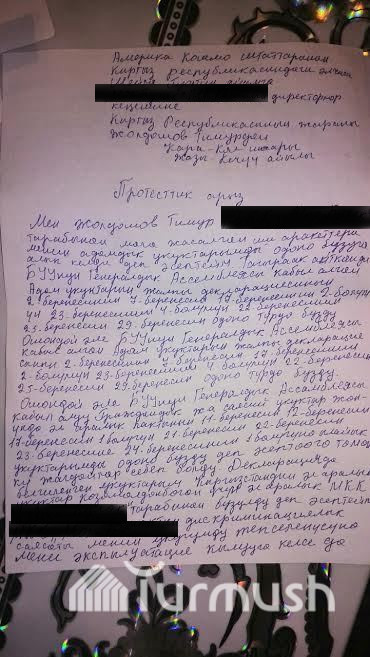 Америка Кошмо Штаттарынын
Кыргыз республикасындагы элчиси
айымга
директорлор
кеңешине
Кыргыз Республикасынын жараны
Жолдошов Тимурден
Кара-Көл шаары
Жазы-Кечүү айылы
Протесттик арыз
Мен Жолдошов Тимур
тарабынан мага жасалган иш аракеттери
менин адамдык укуктарымды одоно бузууга
алып келди деп эсептейм Тагыраак айтканда
БУУнун Генералдык Ассамблеясы кабыл алган
Адам укуктарын жалпы декларациясынын
2-беренесинин 7-беренеси 17-беренесинин 2-бөлүгүн
23-беренесинин 4-бөлүгүн 22-беренесин
25-беренесин 29-беренесин одоно түрдө бузду
Ошондой эле БУУнун Генералдык Ассамблеясы
кабыл алган Адам укуктарын жалпы декларация
сынын 2-беренесин 7-беренесин 17-беренесинин
2-бөлүгүн 23-беренесинин 4-бөлүгүн 22-беренесин
25-беренесин 29-беренесин одоно түрдө бузду.
Ошондой эле БУУнун Генералдык Ассамблеясы
кабыл алган Граждандык жа саясий укуктар жөн-
үндө эл аралык пактынын 12-беренесин
17-беренесин 1 бөлүгүн 21-беренесин 22-беренесин
23-беренесине 24-беренесинин 1 бөлүгүн
укуктарымды одоно бузду деп эсептөөгө төмөн
кү жагдайлар себеп болду. Декларацияда
белгиленген укуктарым Кыргызстандын эл аралык
укуктар эл аралык МКК
тарабынан бузулду деп эсептейм
дискриминациялык
саясаты менин
Мени эксплуатация кылууга келсе да
Turmush